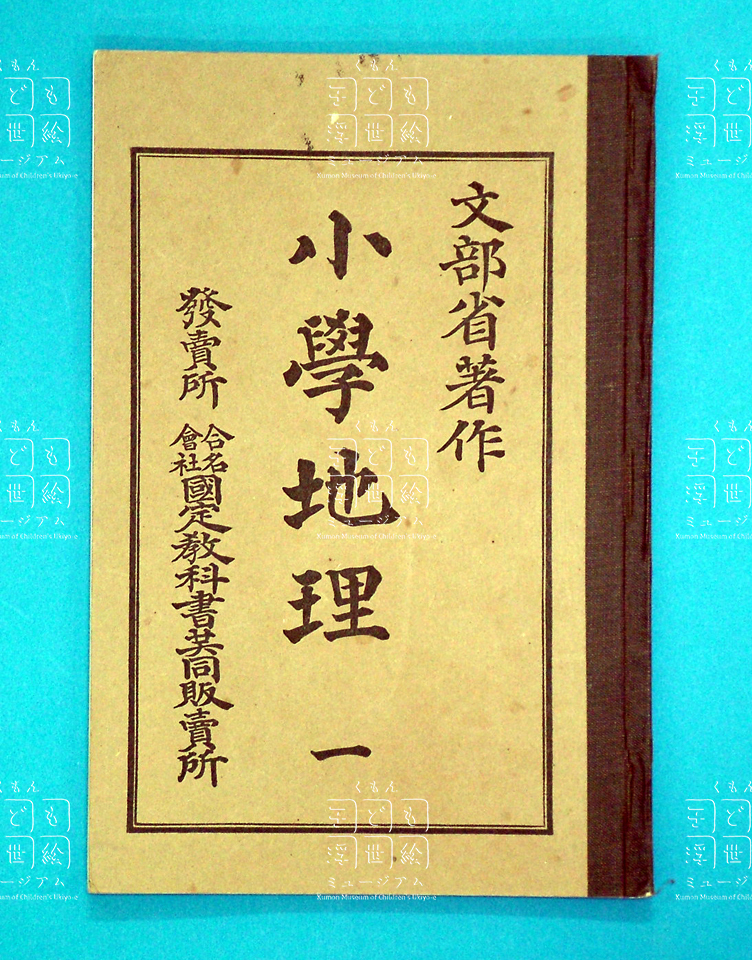 文部省著作
小學地理 一
發賣所 合名會社 國定教科書共同販賣所
くもん
子ども
浮世絵
ミュージアム
Kumon Museum of Children's Ukiyo-e